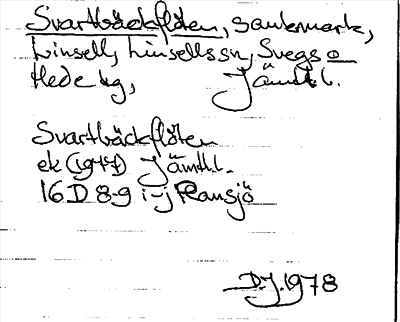 Svartbäckflöten, sankmark,
Linsell, Linsells sn, Svegs o
Hede tg, Jämtl.
Svartbäckflöten
ek (1977) Jämtl.
16D 8-9 i-j Ransjö
D.J. 1978